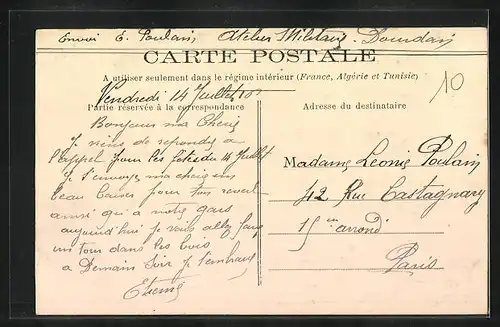 Envoi E. Poulain Atelier Militaire Dourdan
CARTE POSTALE
A utiliser seulement dans le régime intérieur (France, Algérie et Tunisie)
10
Vendredi 14 Juillet
Partie réservée à la correspondance
Adresse du destinataire
Bonjour ma Cherie
Je viens de repondre a
l'appel pour les fetes du 14 Juillet
Je t'envoye ma cherie un
beau baiser pour ton reveil
ainsi qu'a notre gars
aujourd'hui je vais aller faire
un tour dans les bois
a Demain Soir je t'embrasse
Etienne
Madame Leonie Poulain
42 Rue Castagnary
15 me arrond
Paris